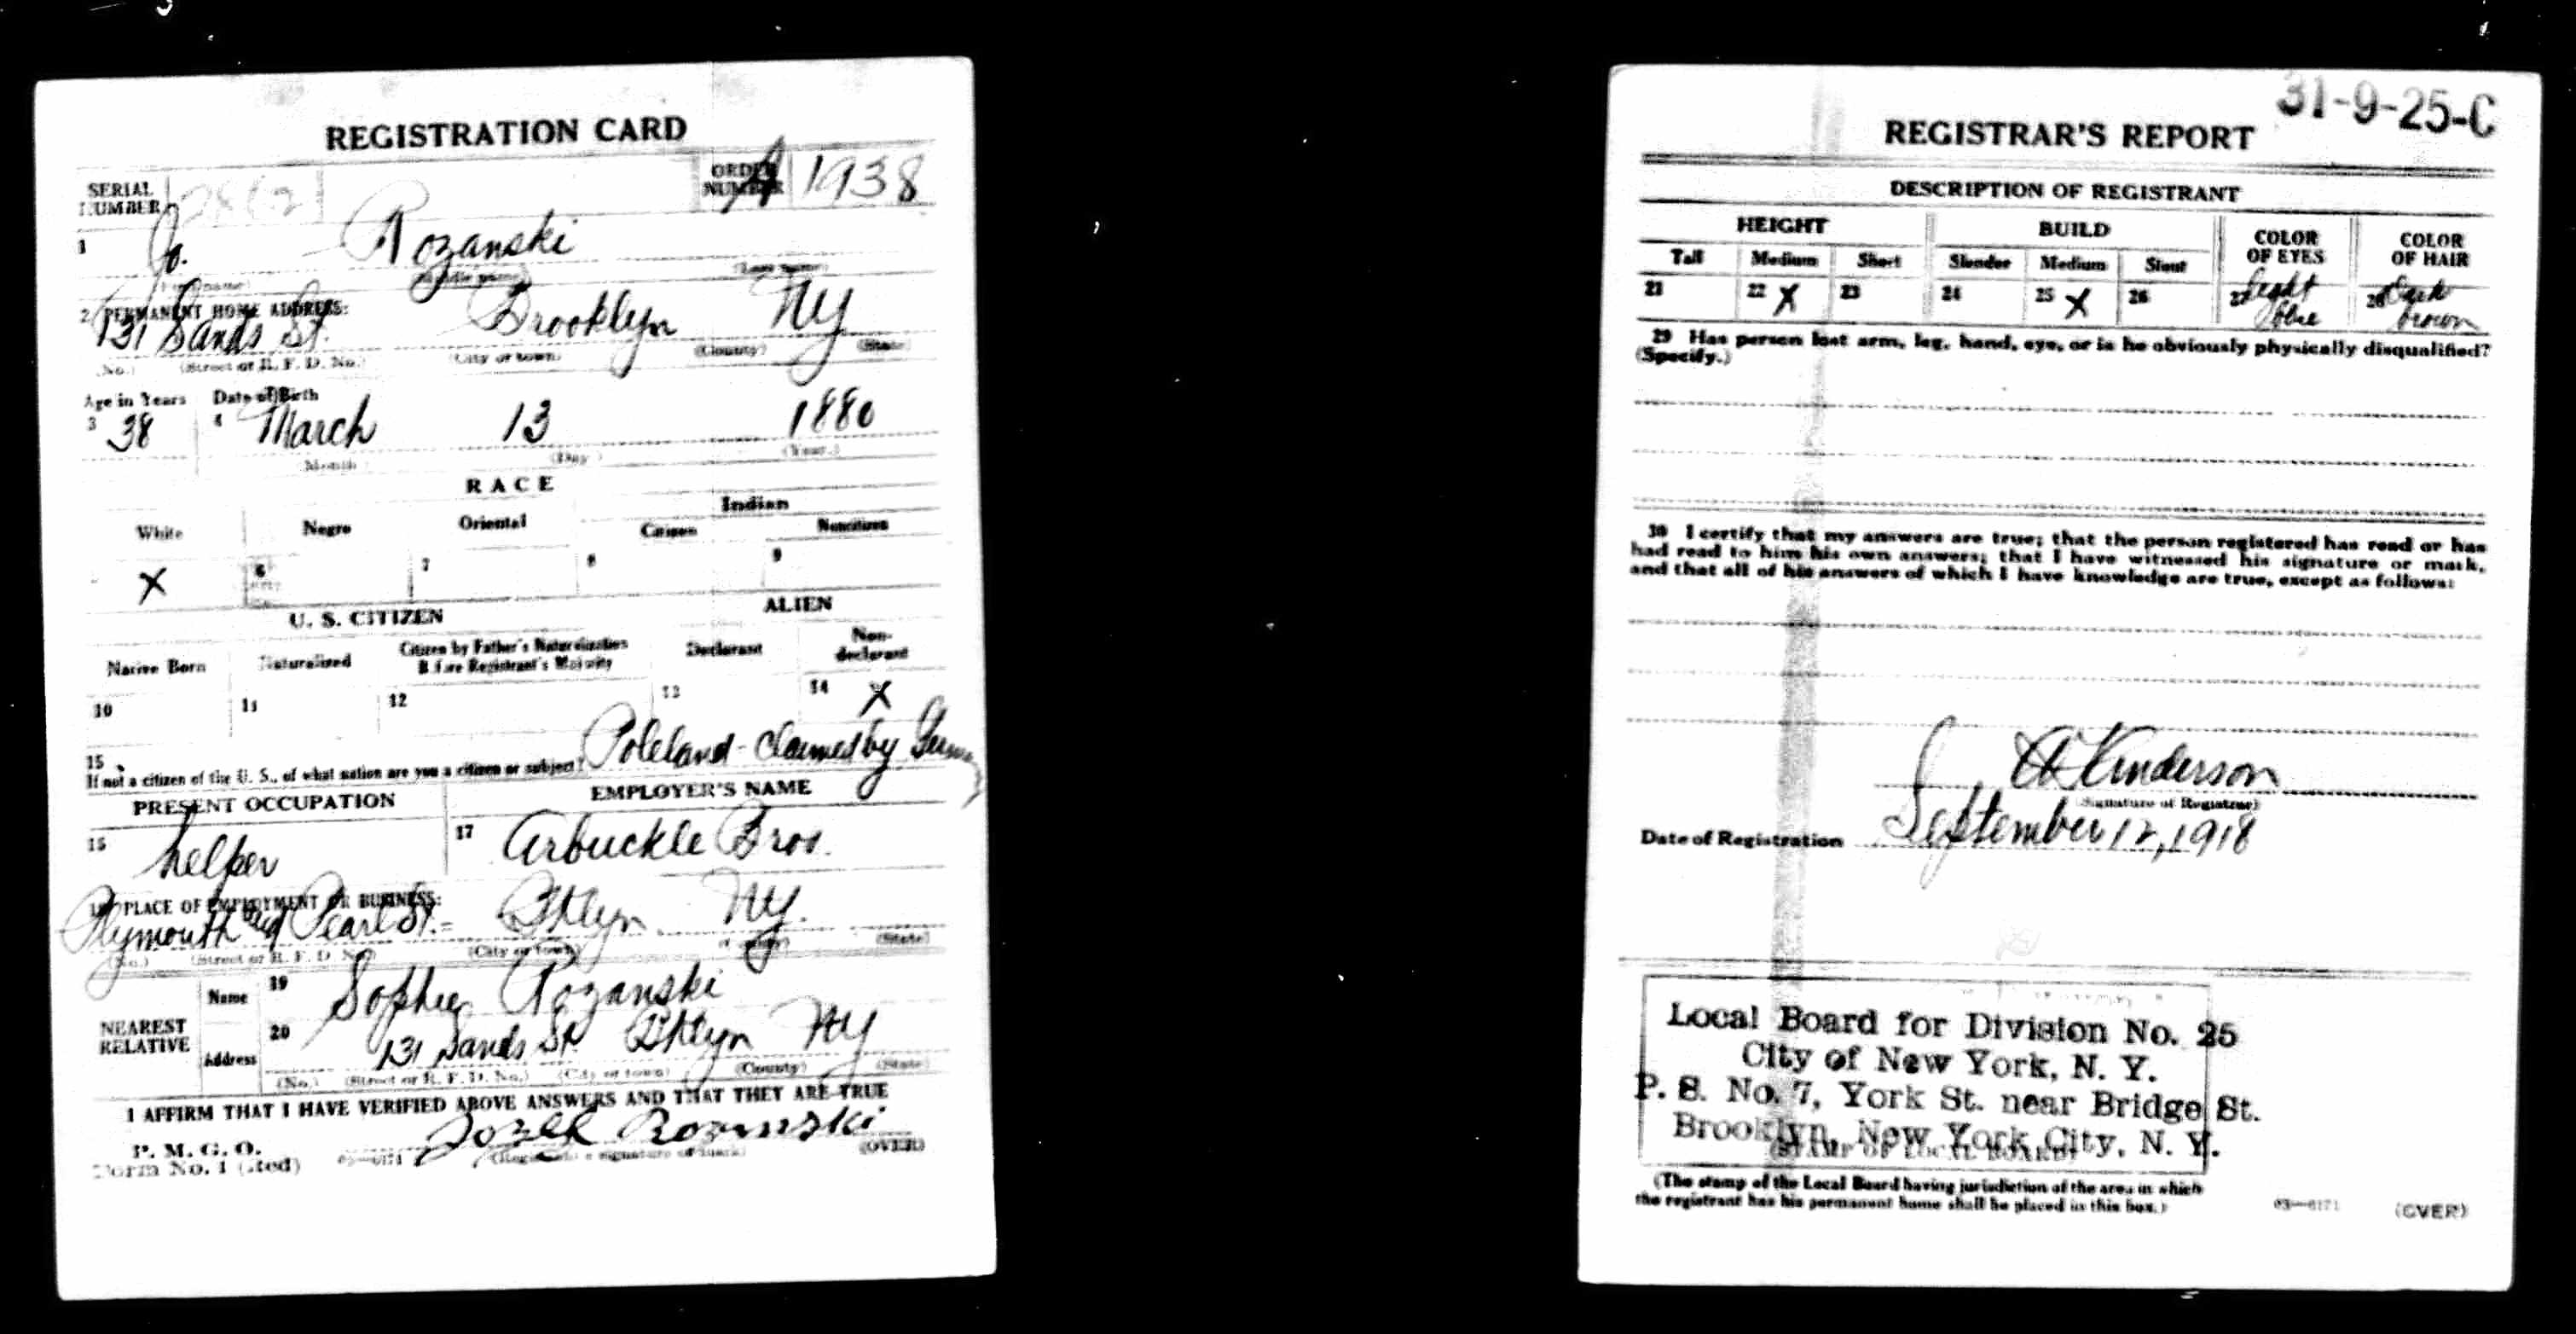 REGISTRATION CARD
SERIAL NUMBER
ORDER NUMBER A 1938
1 Jo. Rozanski
(Middle name) (Last name)
2 PERMANENT HOME ADDRESS:
131 Sands St. Brooklyn NY
(No.) (Street or R. F. D. No.) (City or town) (County) (State)
Age in Years Date of Birth
3 38 4 March 13 1880
(Month) (Day) (Year)
RACE
White Negro Oriental Indian
Citizen Noncitizen
X 6 7 8 9
U. S. CITIZEN ALIEN
Native Born Naturalized Citizen by Father's Naturalization Before Registrant's Majority Declarant Non-declarant
10 11 12 13 14 X
15 If not a citizen of the U. S., of what nation are you a citizen or subject? Poleland - claimed by Germany
PRESENT OCCUPATION EMPLOYER'S NAME
16 helper 17 Arbuckle Bros.
18 PLACE OF EMPLOYMENT OR BUSINESS:
Plymouth and Pearl St. - Bklyn NY.
(No.) (Street or R. F. D. No.) (City or town) (County) (State)
NEAREST RELATIVE
Name 19 Sophie Rozanski
Address 20 131 Sands St. Bklyn NY
(No.) (Street or R. F. D. No.) (City or town) (County) (State)
I AFFIRM THAT I HAVE VERIFIED ABOVE ANSWERS AND THAT THEY ARE TRUE
P. M. G. O.
Form No. 1 (Red) 03—6171 (Registrant's signature or mark) (OVER)
31-9-25-C
REGISTRAR'S REPORT
DESCRIPTION OF REGISTRANT
HEIGHT BUILD COLOR OF EYES COLOR OF HAIR
Tall Medium Short Slender Medium Stout
21 22 X 23 24 25 X 26 27 Light blue 28 Dark brown
29 Has person lost arm, leg, hand, eye, or is he obviously physically disqualified?
(Specify.)
30 I certify that my answers are true; that the person registered has read or has
had read to him his own answers; that I have witnessed his signature or mark,
and that all of his answers of which I have knowledge are true, except as follows:
(Signature of Registrar)
Date of Registration September 12, 1918
Local Board for Division No. 25
City of New York, N. Y.
P. S. No. 7, York St. near Bridge St.
Brooklyn, New York City, N. Y.
(STAMP OF LOCAL BOARD)
(The stamp of the Local Board having jurisdiction of the area in which
the registrant has his permanent home shall be placed in this box.)
03—6171 (OVER)